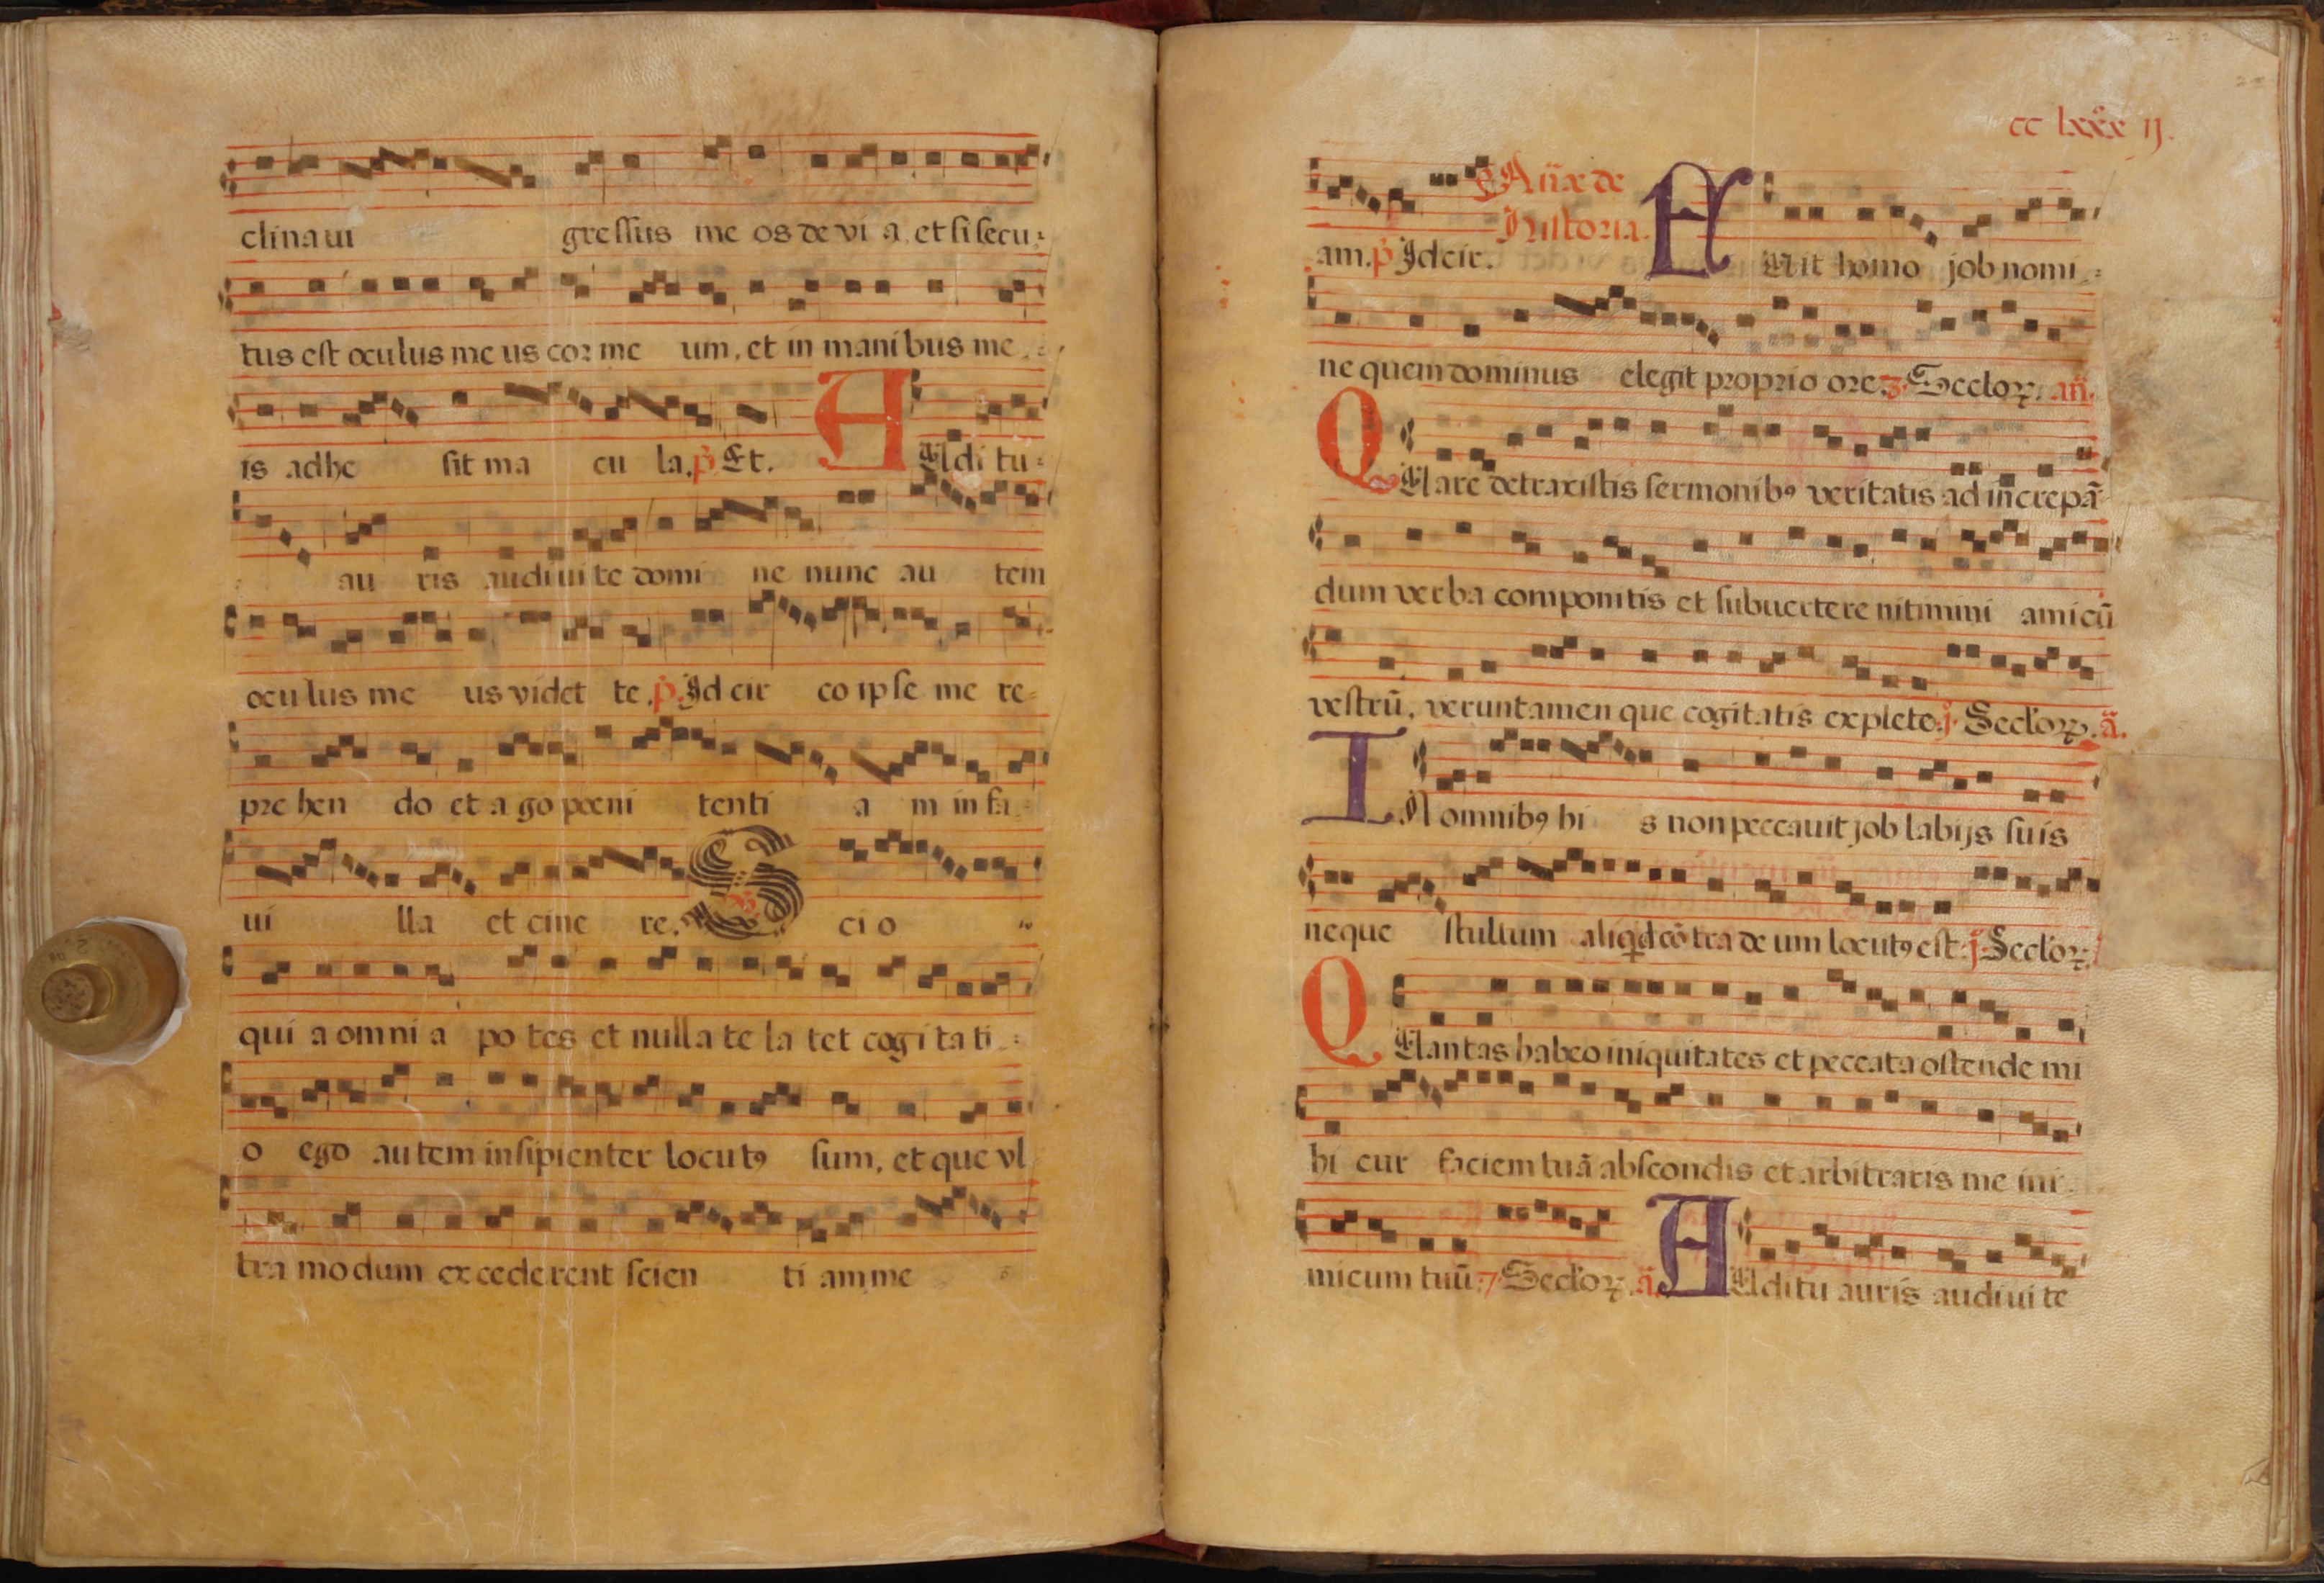 clinaui gressus me os de vi a. et si secu-
tus est oculus me us cor me um, et in mani bus me-
is adhe sit ma cu la. p̄ Et. A Udi tu-
au ris audi ui te domi ne nunc au tem
oculus me us videt te. p̄ Id cir co ipse me re-
pre hen do et a go poeni tenti a m in fa-
ui lla et cine re. S ℣ ci o
qui a omni a po tes et nulla te la tet cogi ta ti-
o ego autem insipienter locutꝰ sum, et que vl
tra modum excederent scien ti am me
cc lxxx ij.
am. p̄ Idcir. Añæ de
historia. F Uit homo job nomi-
ne quem dominus elegit proprio ore. 3. Secloꝝ. añ.
Q Uare detraxistis sermonibꝰ veritatis ad increpā
dum verba componitis et subuertere nitimini amicū
vestrū, veruntamen que cogitatis explete. j. Secloꝝ. ā.
I N omnibꝰ hi s non peccauit job labijs suis
neque stultum aliqd cōtra deum locutꝰ est. j. Secloꝝ.
Q Uantas habeo iniquitates et peccata ostende mi
hi cur faciem tuā abscondis et arbitraris me ini-
micum tuū. 7. Secloꝝ. ā. A Uditu auris audiui te